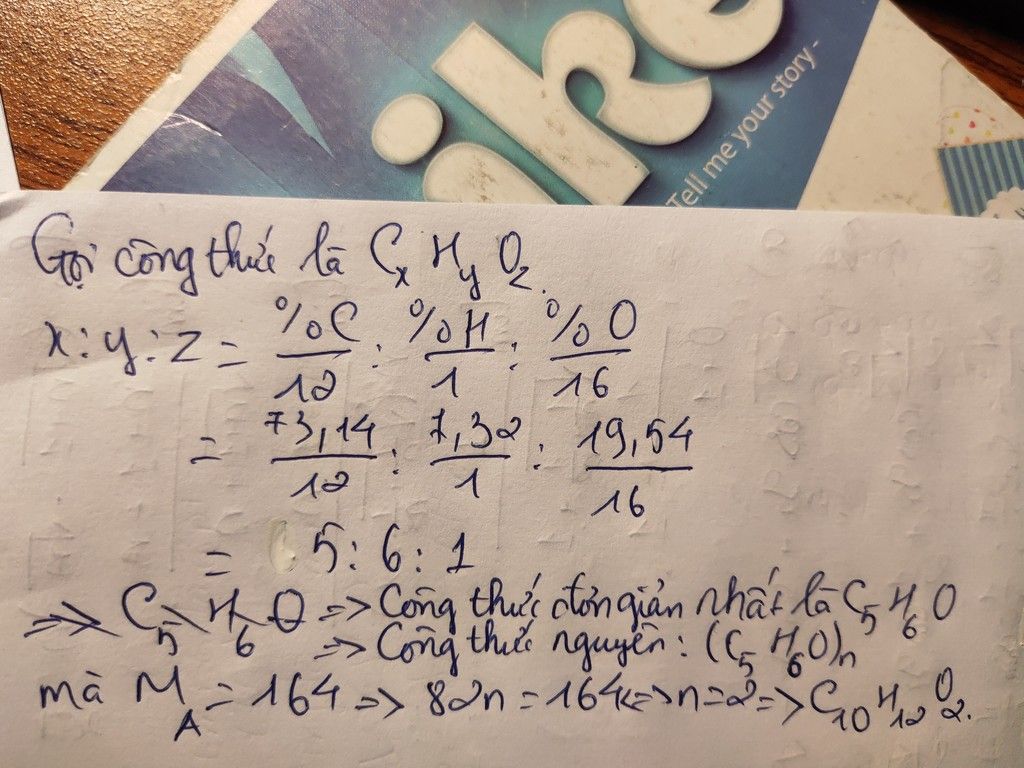 ike
Tell me your story -
Gọi công thức là CₓHᵧO_z.
x : y : z = %C/12 : %H/1 : %O/16
= 73,14/12 : 7,32/1 : 19,54/16
= 5 : 6 : 1
=>> C₅H₆O => Công thức đơn giản nhất là C₅H₆O
=> Công thức nguyên : (C₅H₆O)n
mà M_A = 164 => 82n = 164 <=> n = 2 => C₁₀H₁₂O₂.